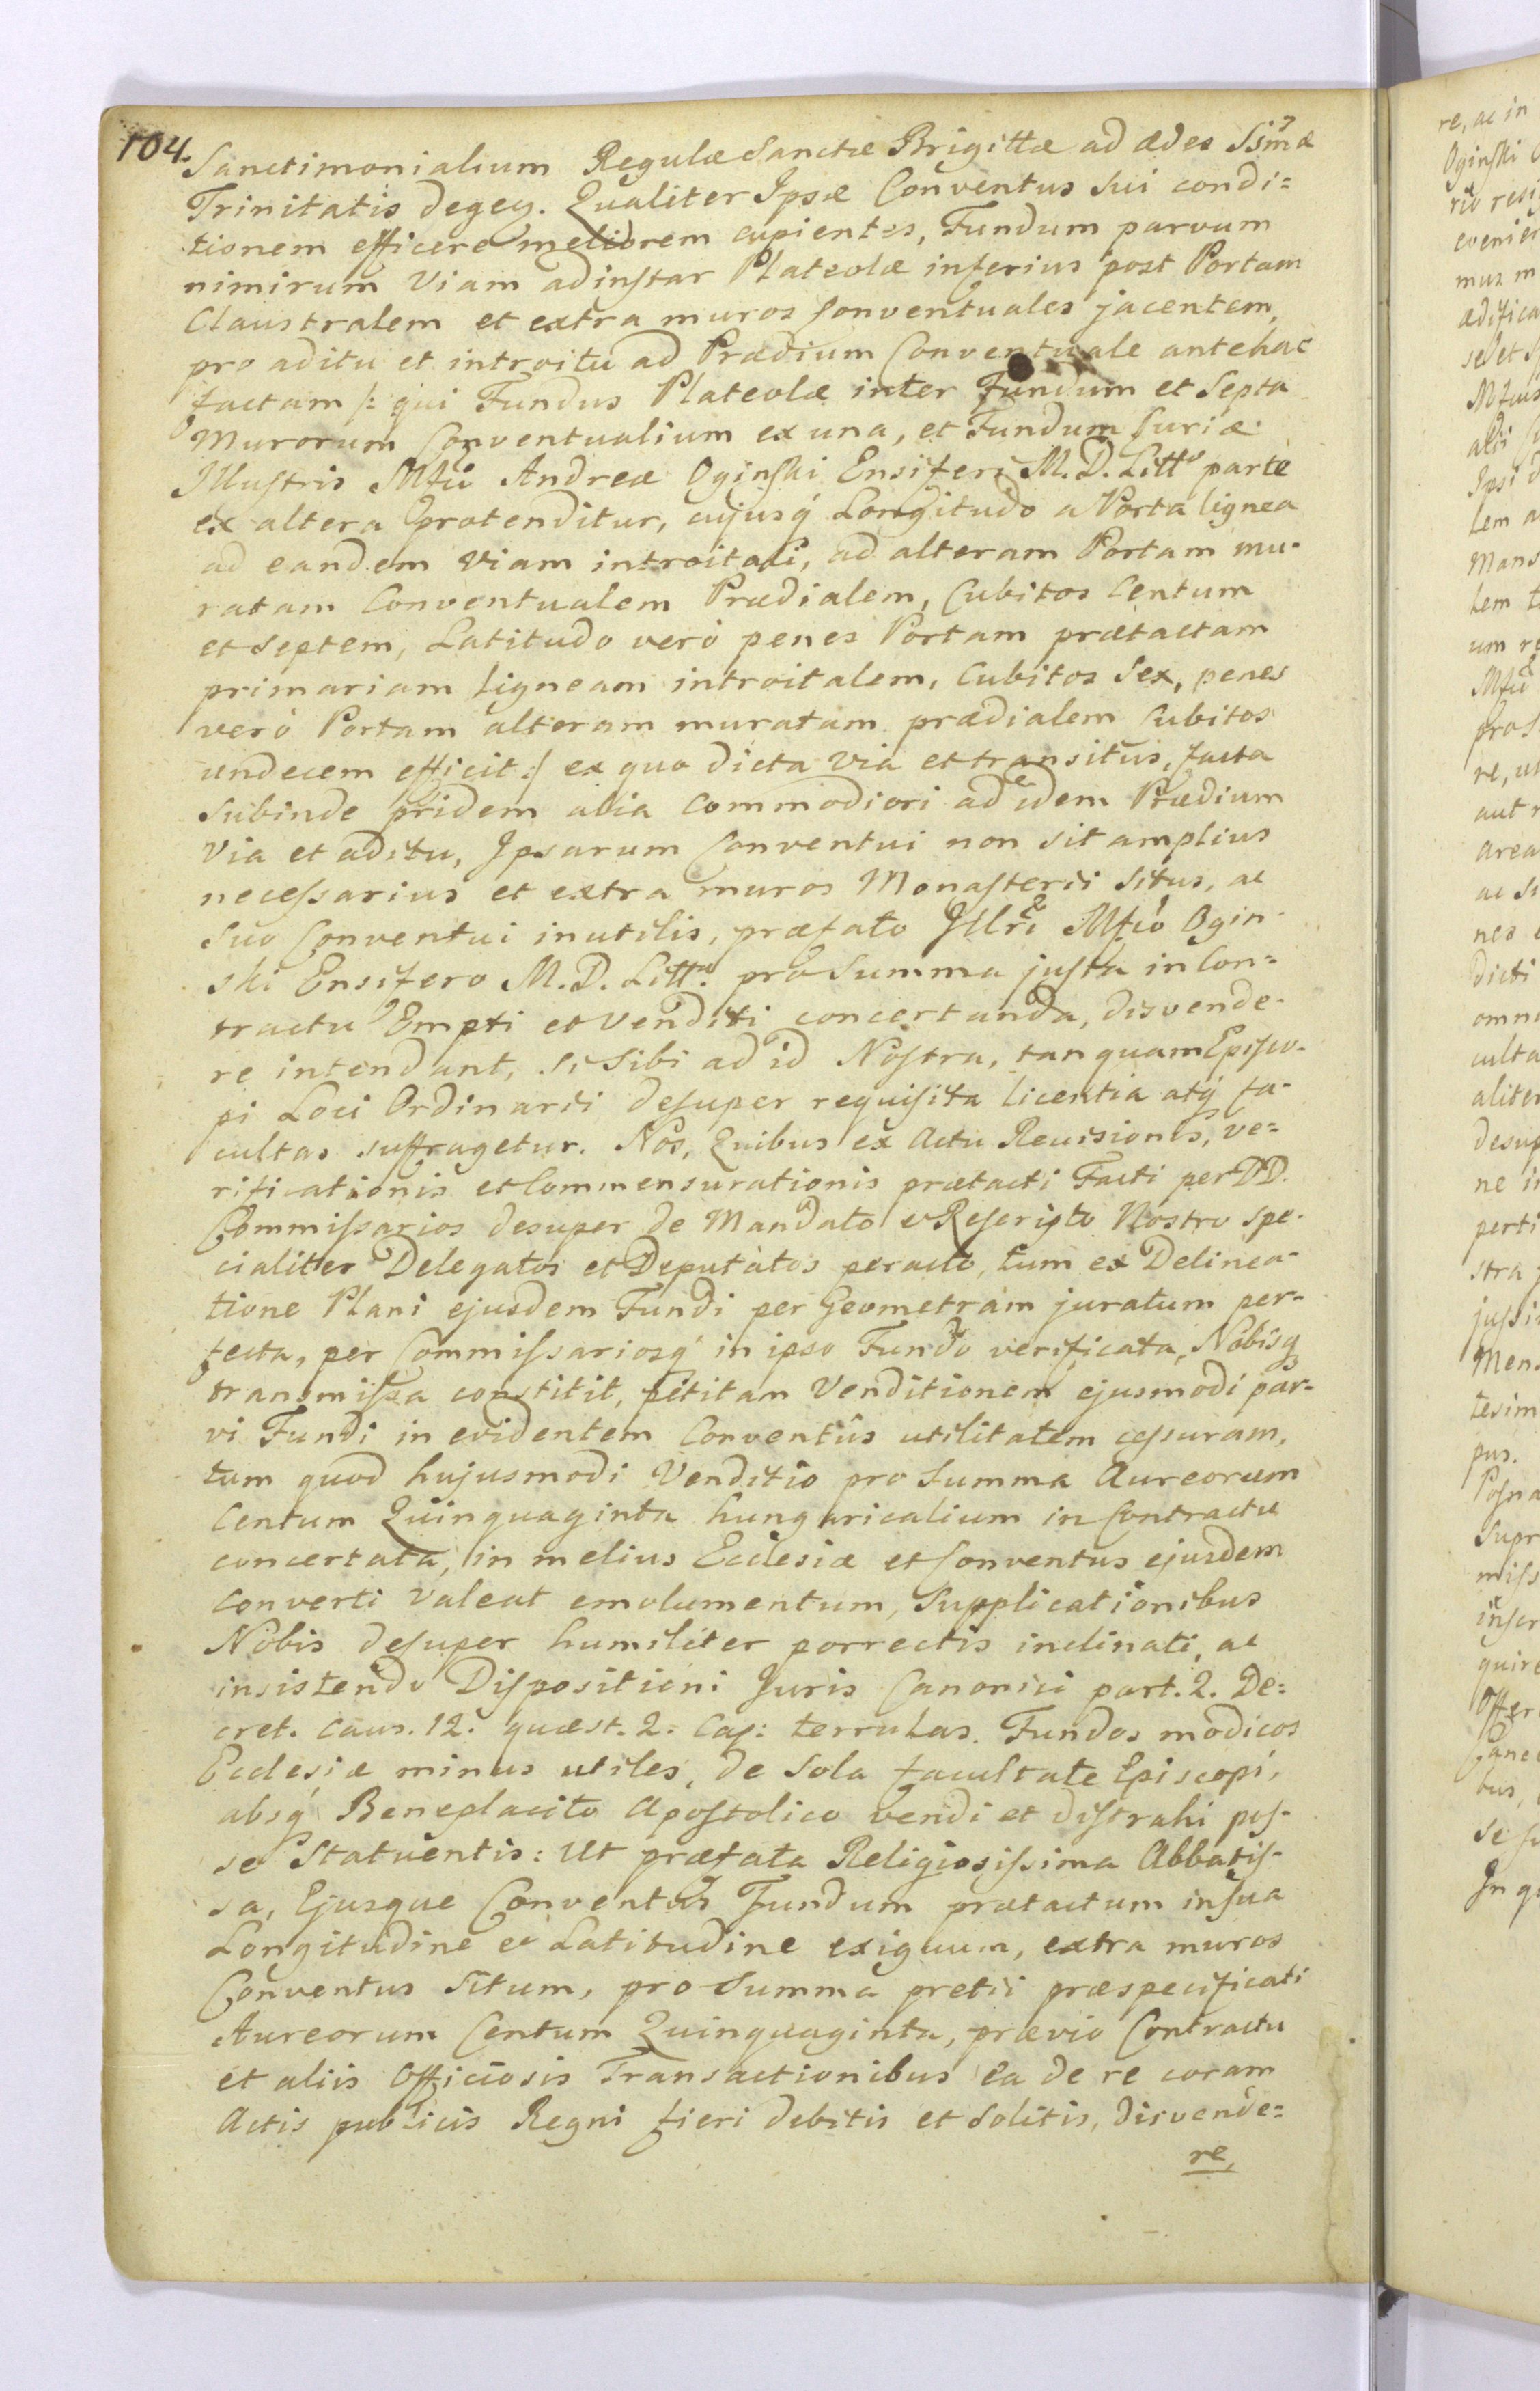 104.
Sanctimonialium Regulæ Sanctæ Brigittæ ad ædes Ssmæ
Trinitatis degeñ. Qualiter Ipsæ Conventus sui condi=
tionem efficere meliorem cupientes, Fundum parvum
nimirum Viam adinstar Plateolæ inferius post Portam
Claustralem et extra muros Conventuales jacentem,
pro aditu et introitu ad Prædium Conventuale antehac
factam /: qui Fundus Plateolæ inter Fundum et Septa
Murorum Conventualium ex una, et Fundum Curiæ
Illustris Mfci Andreæ Oginski Ensiferi M. D. Litt. parte
ex altera protenditur, cujusq́ Longitudo a Porta lignea
ad eandem Viam introitali, ad alteram Portam mu-
ratam Conventualem Prædialem, Cubitos Centum
et Septem, Latitudo verò penes Portam prætactam
primariam ligneam introitalem, Cubitos Sex, penes
verò Portam alteram muratam prædialem Cubitos
undecem efficit :/ ex quo dicta via et transitus, facta
subinde pridem alia commodiori ad idem Prædium
Via et aditu, Ipsarum Conventui non sit amplius
necessarius et extra muros Monasterii situs, ac
suo Conventui inutilis, præfato Illri Mfco Ogin-
ski Ensifero M. D. Litt. pro Summa justa in Con=
tractu Empti et Venditi concertanda, disvende-
re intendant, si Sibi ad id Nostra, tanquam Episco-
pi Loci Ordinarii desuper requisita licentia atq́ fa-
cultas suffragetur. Nos, Quibus ex Actu Revisionis, ve=
rificationis et Commensurationis prætacti Facti per DD.
Commissarios desuper de Mandato e Rescripto Nostro spe-
cialiter Delegatos et Deputatos peracto, tum ex Delinea-
tione Plani ejusdem Fundi per Geometram juratum per-
fecta, per Commissariosq́ in ipso Fundo verificata, Nobisq́
transmissa constitit, petitam Venditionem ejusmodi par-
vi Fundi in evidentem Conventûs utilitatem cessuram,
tum quod hujusmodi Venditio pro Summa Aureorum
Centum Quinquaginta hungaricalium in Contractu
concertata, in melius Ecclesiæ et Conventus ejusdem
converti valeat emolumentum, Supplicationibus
Nobis desuper humiliter porrectis inclinati, ac
insistendo Dispositioni Juris Canonici part. 2. De=
cret. Caus. 12. quæst. 2. Cap: terrulas. Fundos modicos
Ecclesiæ minus utiles, de sola facultate Episcopi,
absq́ Beneplacito Apostolico vendi et distrahi pos-
se Statuentis: Ut præfata Religiosissima Abbatis-
sa, Ejusque Conventus Fundum prætactum in sua
Longitudine et Latitudine exiguum, extra muros
Conventus situm, pro Summa pretii præspecificati
Aureorum Centum Quinquaginta, prævio Contractu
et aliis Officiosis Transactionibus ea de re coram
Actis publicis Regni fieri debitis et solitis, disvende=
re,
re, ac in
Oginski
resi
mus m
ædifica
sed et
Mfcus
Ipsi
lem a
Mans
um re
Mfci
pro S
re, ut
aut
area
ac su
nes
dicti
omn
culta
aliter
desup
ne in
perti
stra
jussi
Mens
tesim
pus.
Posna
Supr
miss
inser
quire
Offer
tus,
se
In q